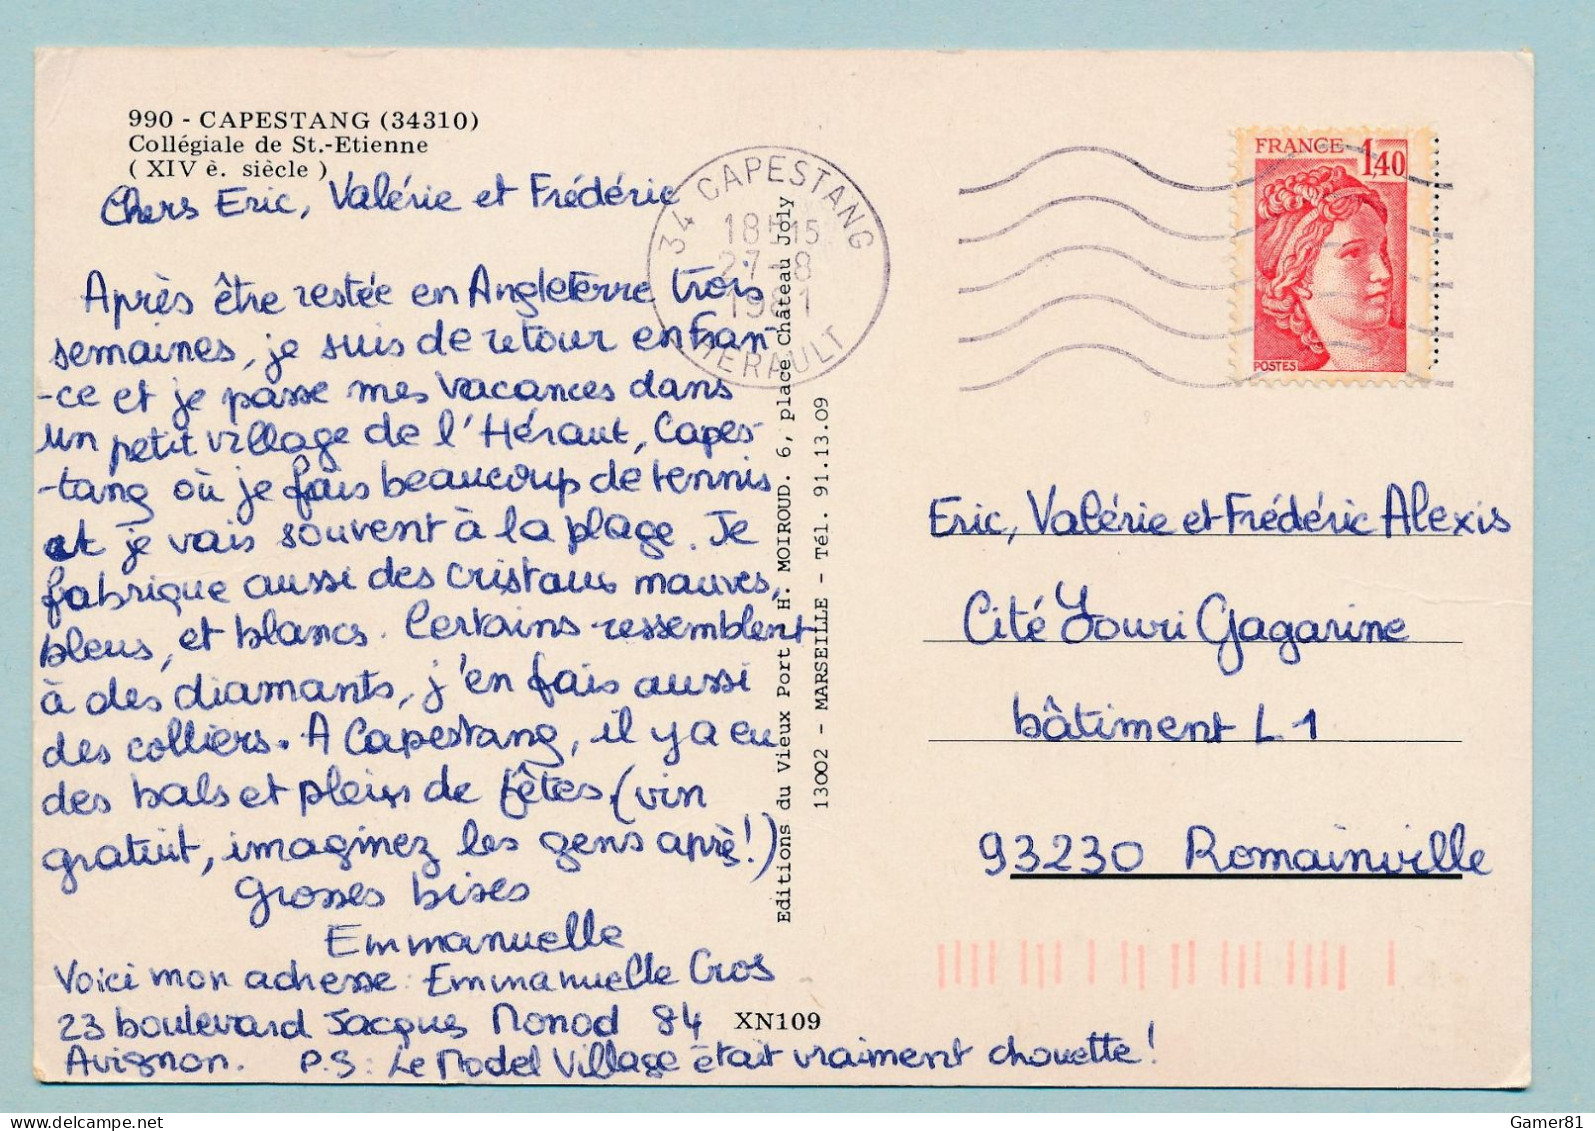 990 - CAPESTANG (34310)
Collégiale de St.-Etienne
( XIV è. siècle )
Chers Eric, Valérie et Frédéric
Après être restée en Angleterre trois
semaines, je suis de retour en Fran-
-ce et je passe mes vacances dans
un petit village de l'Héraut, Capes-
-tang où je fais beaucoup de tennis
et je vais souvent à la plage. Je
fabrique aussi des cristaux mauves,
bleus, et blancs. Certains ressemblent
à des diamants, j'en fais aussi
des colliers. A Capestang, il y a eu
des bals et pleins de fêtes, (vin
gratuit, imaginez les gens après!)
Grosses bises
Emmanuelle
Voici mon adresse : Emmanuelle Cros
23 boulevard Jacques Monod 84
Avignon. P.S : Le Model Village était vraiment chouette !
XN109
Editions du Vieux Port H. MOIROUD. 6, place Château Joly
13002 - MARSEILLE - Tél. 91.13.09
34 CAPESTANG
18H15
27-8
1981
HERAULT
FRANCE 1,40
POSTES
Eric, Valérie et Frédéric Alexis
Cité Youri Gagarine
bâtiment L 1
93230 Romainville
Gamer81